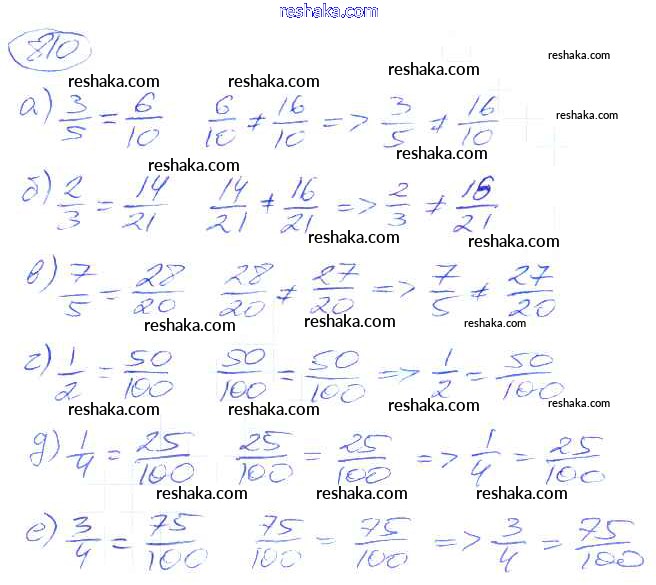 www.reshaka.com
810
reshaka.com reshaka.com reshaka.com reshaka.com
а) 3/5 = 6/10 6/10 ≠ 16/10 => 3/5 ≠ 16/10
reshaka.com
reshaka.com reshaka.com
б) 2/3 = 14/21 14/21 ≠ 16/21 => 2/3 ≠ 16/21
reshaka.com
reshaka.com
в) 7/5 = 28/20 28/20 ≠ 27/20 => 7/5 ≠ 27/20
reshaka.com reshaka.com reshaka.com
г) 1/2 = 50/100 50/100 = 50/100 => 1/2 = 50/100
reshaka.com reshaka.com reshaka.com reshaka.com
д) 1/4 = 25/100 25/100 = 25/100 => 1/4 = 25/100
reshaka.com reshaka.com reshaka.com
е) 3/4 = 75/100 75/100 = 75/100 => 3/4 = 75/100